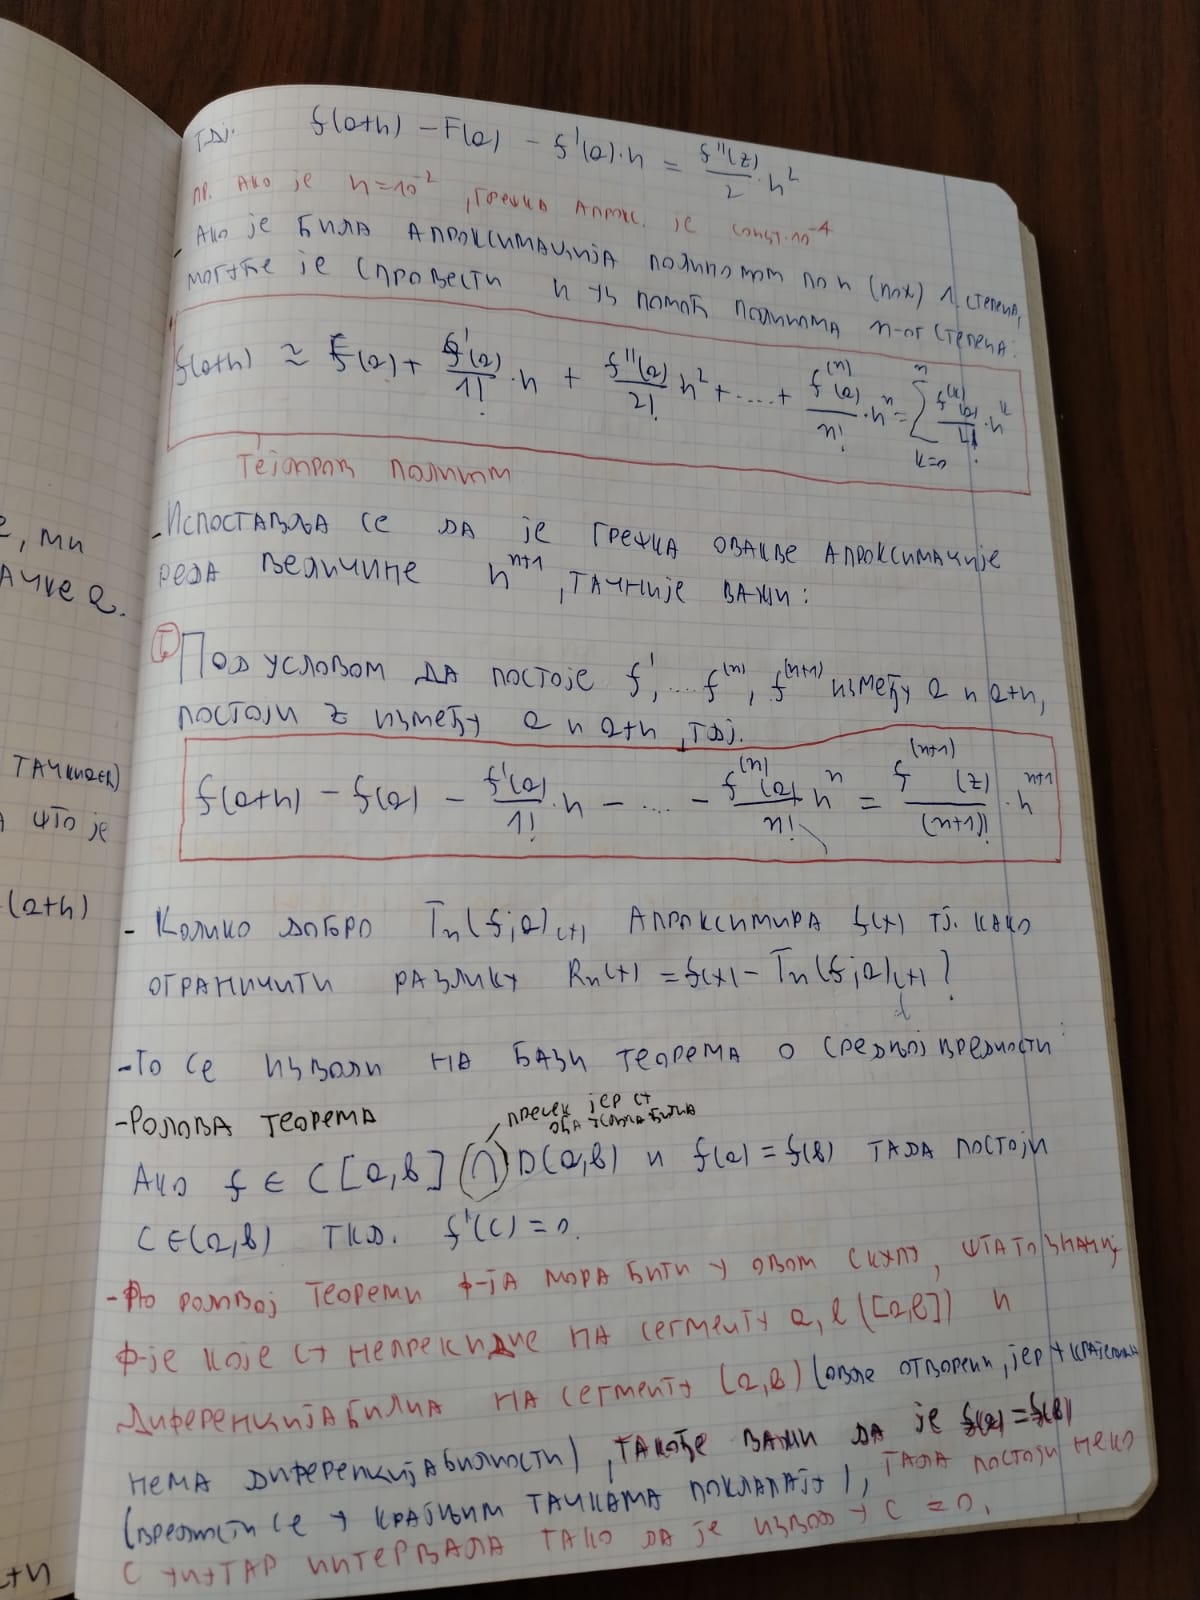 тдј. f(a+h) - F(a) - f'(a)·h = f''(z)/2 · h²
пр. Ако је h=10⁻², грешка апрокс. је const·10⁻⁴
- Ако је била апроксимација полиномом по h (пох) 1. степена,
могуће је спровести и уз помоћ полинома n-ог степена:
f(a+h) ≈ F(a) + f'(a)/1! · h + f''(a)/2! h² + .... + f⁽ⁿ⁾(a)/n! · hⁿ = ∑ₖ₌₀ⁿ f⁽ᵏ⁾(a)/ · hᵏ
Тејлоров полином
- Испоставља се да је грешка овакве апроксимације
реда величине hⁿ⁺¹, тачније важи:
Т Под условом да постоје f', ... f⁽ⁿ⁾, f⁽ⁿ⁺¹⁾ између a и a+h,
постоји z између a и a+h, тдј.
f(a+h) - f(a) - f'(a)/1! · h - .... - f⁽ⁿ⁾(a)/n! hⁿ = f⁽ⁿ⁺¹⁾(z)/(n+1)! · hⁿ⁺¹
- Колико добро Tn(f;a)(x) апроксимира f(x) тј. како
ограничити разлику Rn(x) = f(x) - Tn(f;a)(x)?
- То се изводи на бази теорема о средњој вредности:
- Ролова теорема
пресек јер су
оба условa битна
Ако f ∈ C[a,b] ∩ D(a,b) и f(a) = f(b) тада постоји
c∈(a,b) ткд. f'(c) = 0.
- По роловој теореми ф-ја мора бити у овом скупу, шта то значи,
ф-је које су непрекидне на сегменту a, b ([a,b]) и
диференцијабилна на сегменту (a,b) (овде отворени, јер у крајевима
нема диференцијабилности), такође важи да је f(a) = f(b)
(вредности се у крајњим тачкама поклапају), тада постоји неко
c унутар интервала тако да је извод у c = 0.
е, ми
ачке a.
тачкиa
а што је
(a+h)